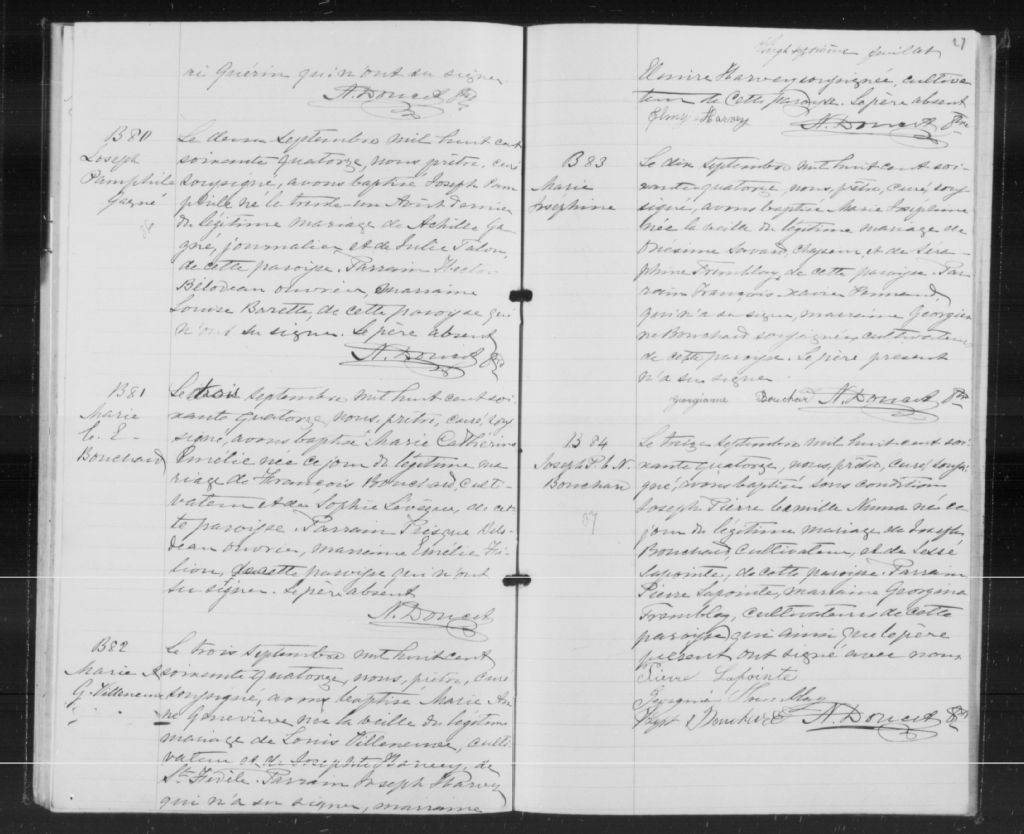 ri Guérin qui n'ont su signer
N. Doucet Ptre
B80
Joseph
Pamphile
Gagné
Le deux Septembre mil huit cent
soixante quatorze, nous, prêtre, curé
soussigné, avons baptisé Joseph Pam
phile né le trente-un Août dernier
du légitime mariage de Achille Ga-
gné, journalier et de Julie Talon,
de cette paroisse. Parrain Hector
Bilodeau ouvrier, marraine
Louise Barette, de cette paroisse qui
n'ont su signer. Le père absent
N. Doucet Ptre
B81
Marie
C. E.
Bouchard
Le trois Septembre mil huit cent soi-
xante quatorze, nous, prêtre, curé, sous
signé, avons baptisé Marie Cathérine
Emélie née ce jour du légitime ma
riage de François Bouchard, culti-
vateur et de Sophie Lévêque, de cet
te paroisse. Parrain Bilo-
deau ouvrier, marraine Emélie Fi-
lion, de cette paroisse qui n'ont
su signer. Le père absent
N. Doucet
B82
Marie A
G. Villeneuve
Le trois Septembre mil huit cent
soixante quatorze, nous, prêtre, curé
soussigné, avons baptisé Marie An
ne Geneviève née la veille du légitime
mariage de Louis Villeneuve, culti-
vateur et de Josephte Harvey, de
St Fidèle. Parrain Joseph Harvey
qui n'a su signer, marraine
Vingt septième feuillet
27
Elmire Harvey soussignée, cultiva
teur de cette paroisse. Le père absent
Elmire Harvey N. Doucet Ptre
B83
Marie
Josephine
Le dix Septembre mil huit cent soi-
xante-quatorze, nous, prêtre, curé, sous
signé, avons baptisé Marie Joséphine
née la veille du légitime mariage de
Onésime Savard, et de Séra-
phine Tremblay, de cette paroisse. Par
rain François-Xavier
qui n'a su signer, marraine Georgian
ne Bouchard soussignée cultivateurs
de cette paroisse. Le père présent
n'a su signer
georgianne Bouchard N. Doucet Ptre
B84
Joseph P. C. N.
Bouchard
87
Le treize Septembre mil huit cent soi-
xante quatorze, nous, prêtre, curé, soussi
gné, avons baptisé sous condition
Joseph Pierre Camille Numa né ce
jour du légitime mariage de Joseph
Bouchard cultivateur, et de
Lapointe, de cette paroisse. Parrain
Pierre Lapointe, marraine Georgina
Tremblay, cultivateurs de cette
paroisse, qui ainsi que le père
présent, ont signé avec nous
Pierre Lapointe
N. Doucet Ptre